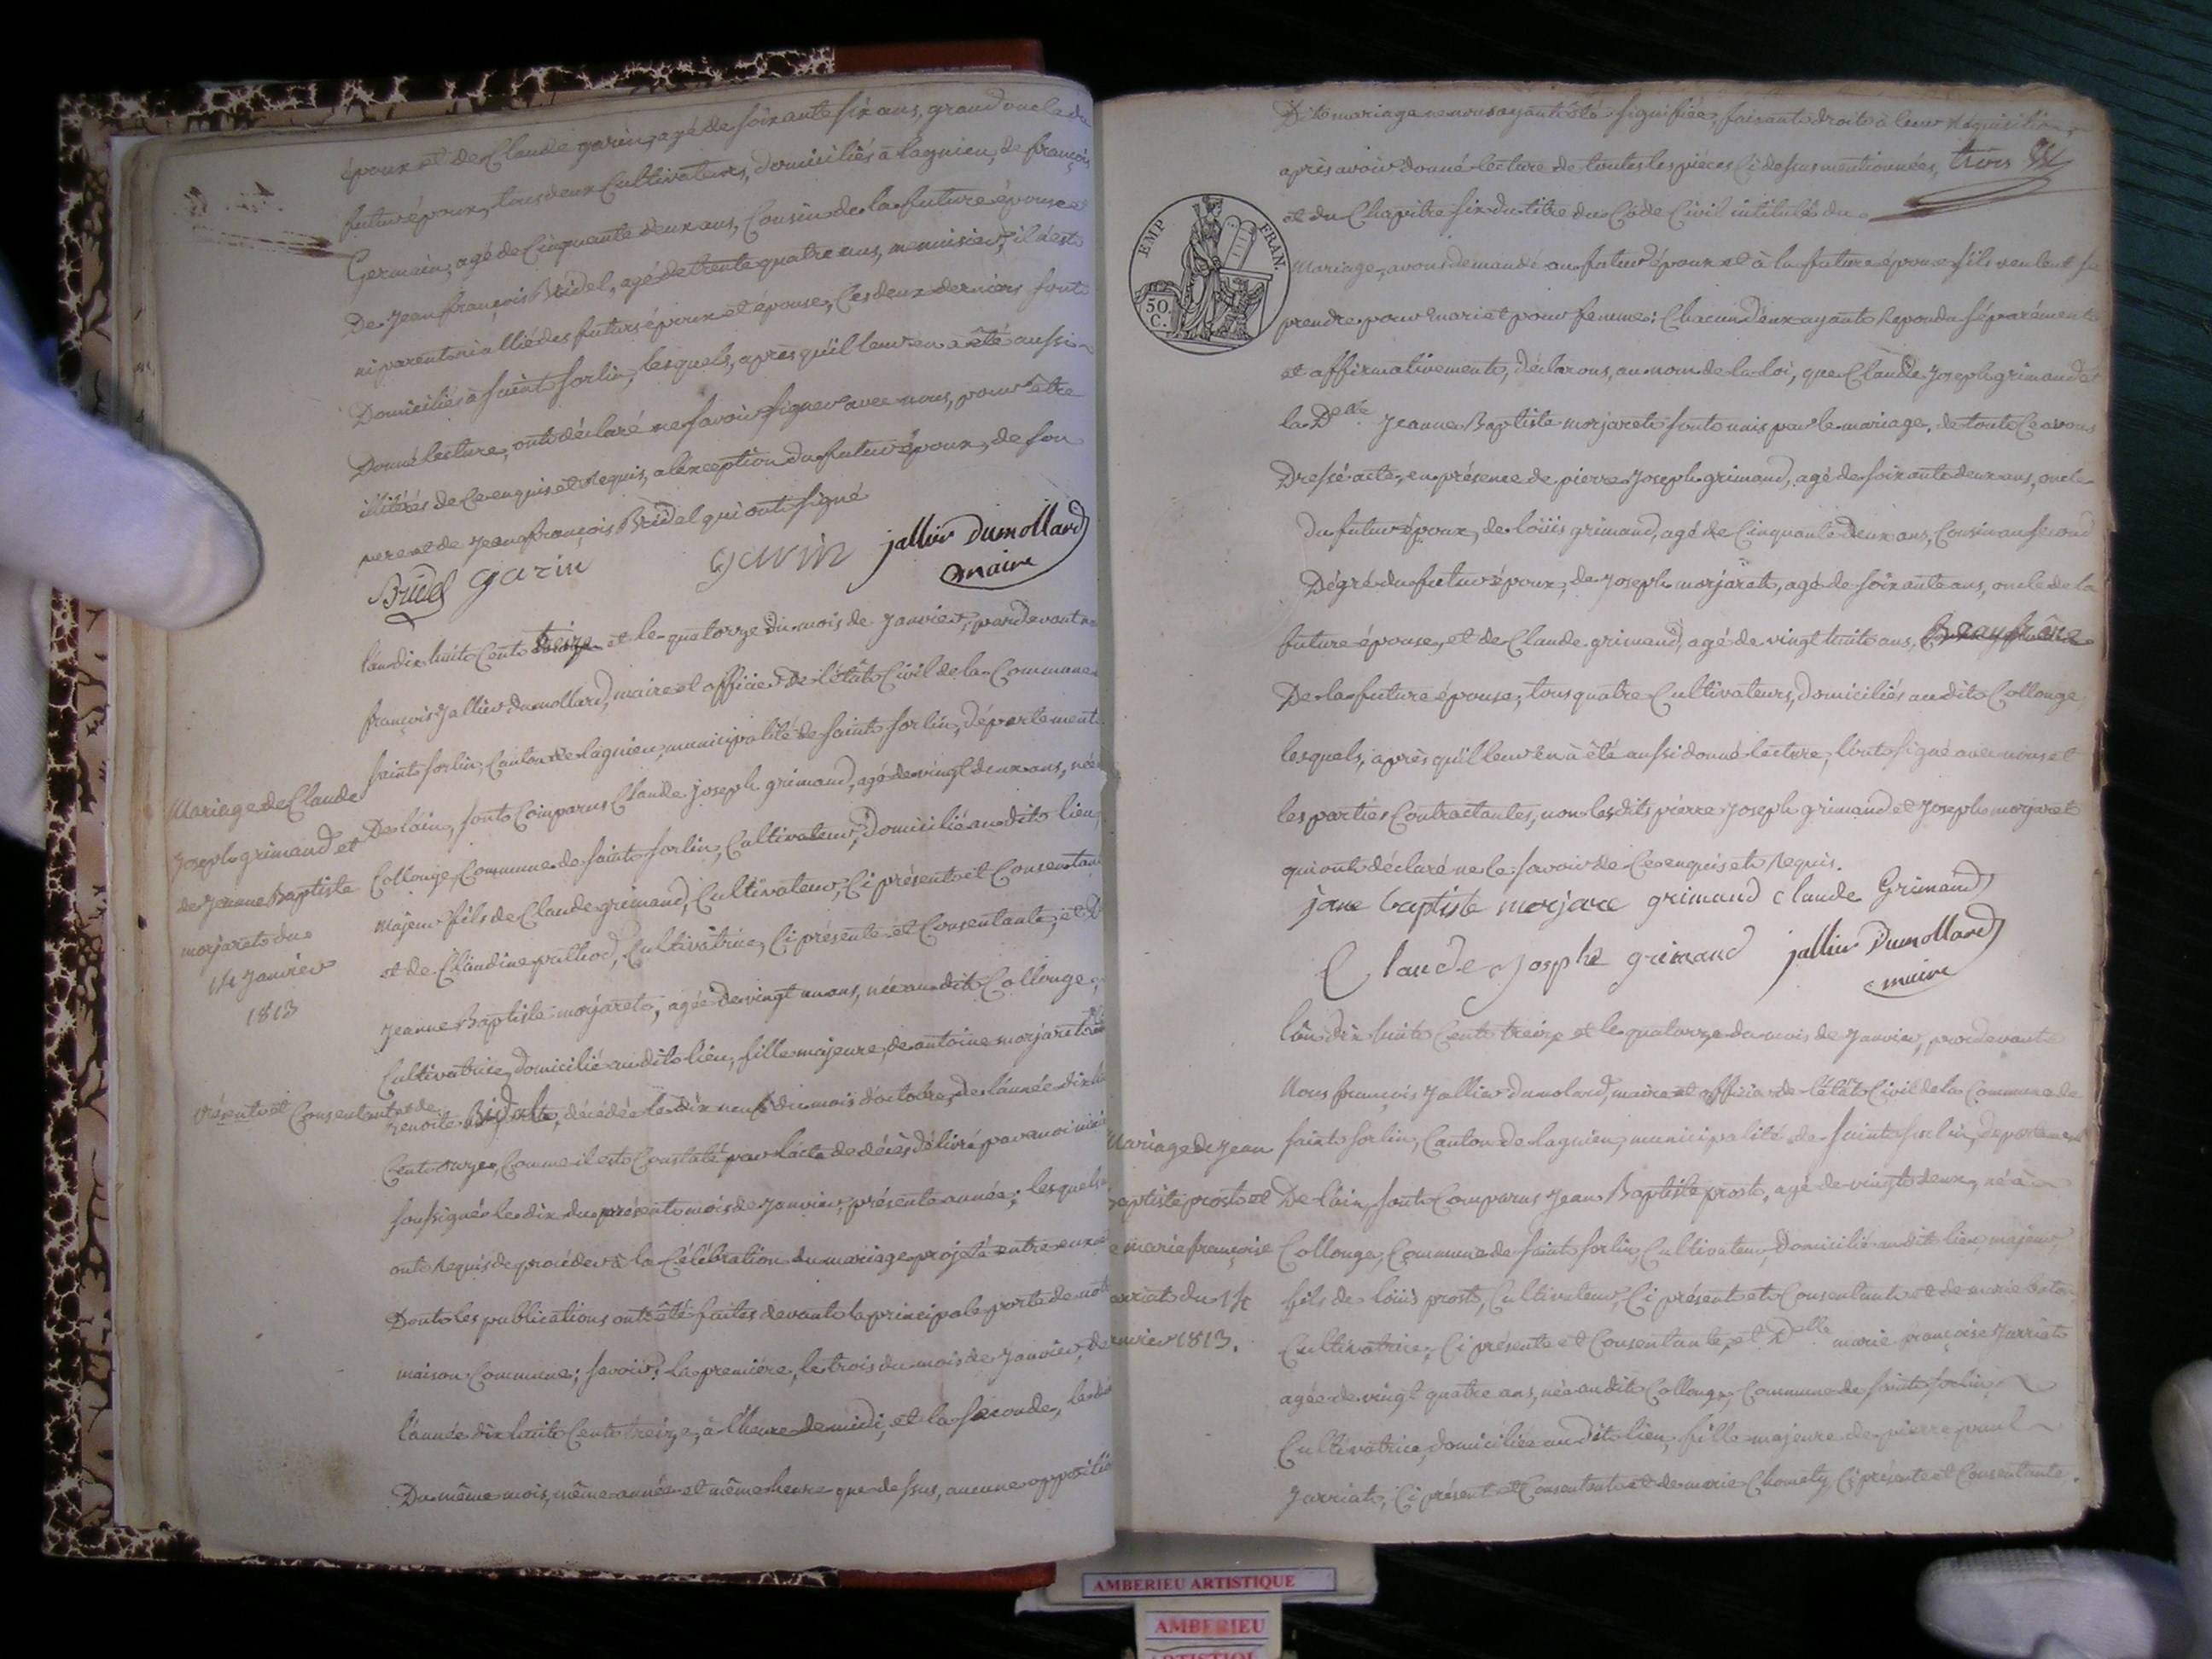 époux et de Claude garin, agé de soixante six ans, grand oncle du
futur époux, tous deux Cultivateurs, domiciliés à lagnieu, de françois
Germain, agé de Cinquante deux ans, Cousin de la future épouse et
De Jean françois Bridel, agé de trente quatre ans, menuisier, il n'est
ni parent ni allié des futurs époux et épouse, Ces deux derniers sont
Domiciliés à saint sorlin, lesquels, après qu'il leur en a êté aussi
Donné lecture, ont déclaré ne savoir signer avec nous, pour être
illitérés de Ce enquis et Requis, a lexception du futur époux, de son
pere et de Jean françois Bridel qui ont signé
Bridel garin garin jallier Dumollard
maire
lan dix huit Cent treize et le quatorze du mois de Janvier, pardevant
françois Jallier dumollard, maire et officier de l'état Civil de la Commune
saint sorlin, Canton de lagnieu, municipalité de saint sorlin, département
Mariage de Claude
Joseph grimaud et
de Jeanne Baptiste
morjaret du
14 Janvier
1813
De lain, sont Comparus Claude joseph grimaud, agé de vingt deux ans, né
Collonge, Commune de saint sorlin, Cultivateur, domicilié audit lieu,
Majeur fils de Claude grimaud, Cultivateur, Ci présent et Consentant
et de Claudine pulliod, Cultivatrice, Ci présente et Consentante, et D
Jeanne Baptiste morjaret, agée de vingt un ans, née audit Collonge,
Cultivatrice, domicilié audit lieu, fille majeure, de antoine morjaret
présent et Consentant et de
décédée le dix neuf du mois d'octobre, de l'année dix
Cent onze, Comme il est Constaté par l'acte de décès délivré par moi
soussigné le dix du présent mois de Janvier, présente année; lesquels
ont Requis de procéder à la Célébration du mariage projeté entre eux
Dont les publications ont êté faites devant la principale porte de
maison Commune; savoir: la première, le trois du mois de Janvier, de
l'année dix huit Cent treize, à l'heure de midi, et la seconde, le
Du même mois, même année et même heure que dessus, aucune opposition
Dit mariage ne nous ayant êté signifiée, faisant droit à leur Réquisition
après avoir donné lecture de toutes les pièces Ci dessus mentionnées, trois
et du Chapitre six du titre du Code Civil intitulé du
EMP FRAN.
50. C.
Mariage, avons demandé au futur époux et à la future épouse s'ils veulent se
prendre pour mari et pour femme: Chacun d'eux ayant Repondu séparément
et affirmativement, déclarons, au nom de la loi, que Claude Joseph grimaud et
la Delle Jeanne Baptiste morjaret sont unis par le mariage, de tout Ce avons
Dressé acte, en présence de pierre Joseph grimaud, agé de soixante deux ans, oncle
Du futur époux, de loüis grimaud, agé de Cinquante deux ans, Cousin au second
Dégré du futur époux, de Joseph morjaret, agé de soixante ans, oncle de la
future épouse, et de Claude grimaud, agé de vingt huit ans, Beaufrère
De la future épouse, tous quatre Cultivateurs, domiciliés audit Collonge
lesquels, après qu'il leur en à êté aussi donné lecture, l'ont signé avec nous et
les parties Contractantes, non lesdits pierre Joseph grimaud et Joseph morjaret
qui ont déclaré ne le savoir de Ce enquis et Requis.
jane baptiste morjare grimaud claude Grimaud
Claude Josphe grimaud jallier Dumollard
maire
lan dix huit Cent treize et le quatorze du mois de Janvier, pardevant
Nous françois Jallier dumolard, maire et officier de l'état Civil de la Commune de
saint sorlin, Canton de lagnieu, municipalité de saint sorlin, departement
Mariage de Jean
Baptiste prost et
e marie françoise
arriat du 14
anvier 1813.
De lain, sont Comparus Jean Baptiste prost, agé de vingt deux, né à
Collonge, Commune de saint sorlin, Cultivateur, Domicilié audit lieu, majeur,
fils de loüis prost, Cultivateur, Ci présent et Consentant et de marie
Cultivatrice, Ci présente et Consentante, et Delle marie françoise Jarriat
agée de vingt quatre ans, née audit Collonge, Commune de saint sorlin
Cultivatrice, domiciliée audit lieu, fille majeure de pierre paul
Jarriat, Ci présent et Consentant et de marie Chomety Ci présente et Consentante.
AMBERIEU ARTISTIQUE
AMBERIEU
ARTISTIQUE